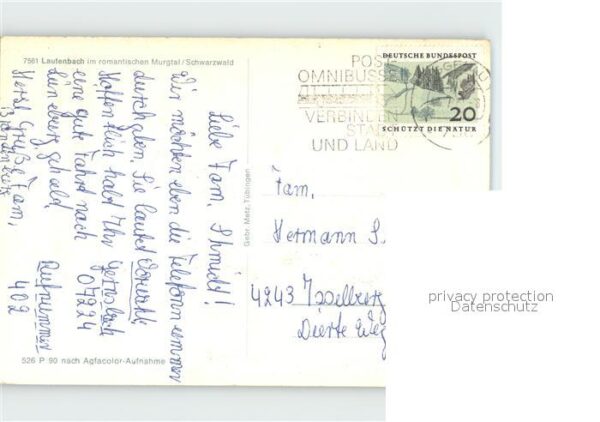 7561 Laufenbach im romantischen Murgtal/Schwarzwald
Liebe Fam. Schmidt!
Wir möchten eben die Telefonnummer
durchgeben. Sie lautet Vorwahl
Hoffentlich habt Ihr
07224
eine gute Fahrt nach
Lüneburg gehabt
Rufnummer
Herzl. Grüße Fam.
402
526 P 90 nach Agfacolor-Aufnahme
Gebr. Metz, Tübingen
POST
OMNIBUSSE
VERBINDEN
STADT
UND LAND
DEUTSCHE BUNDESPOST
20
SCHÜTZT DIE NATUR
Fam.
Hermann S.
4243 Isselburg
Dierte Weg
privacy protection
Datenschutz